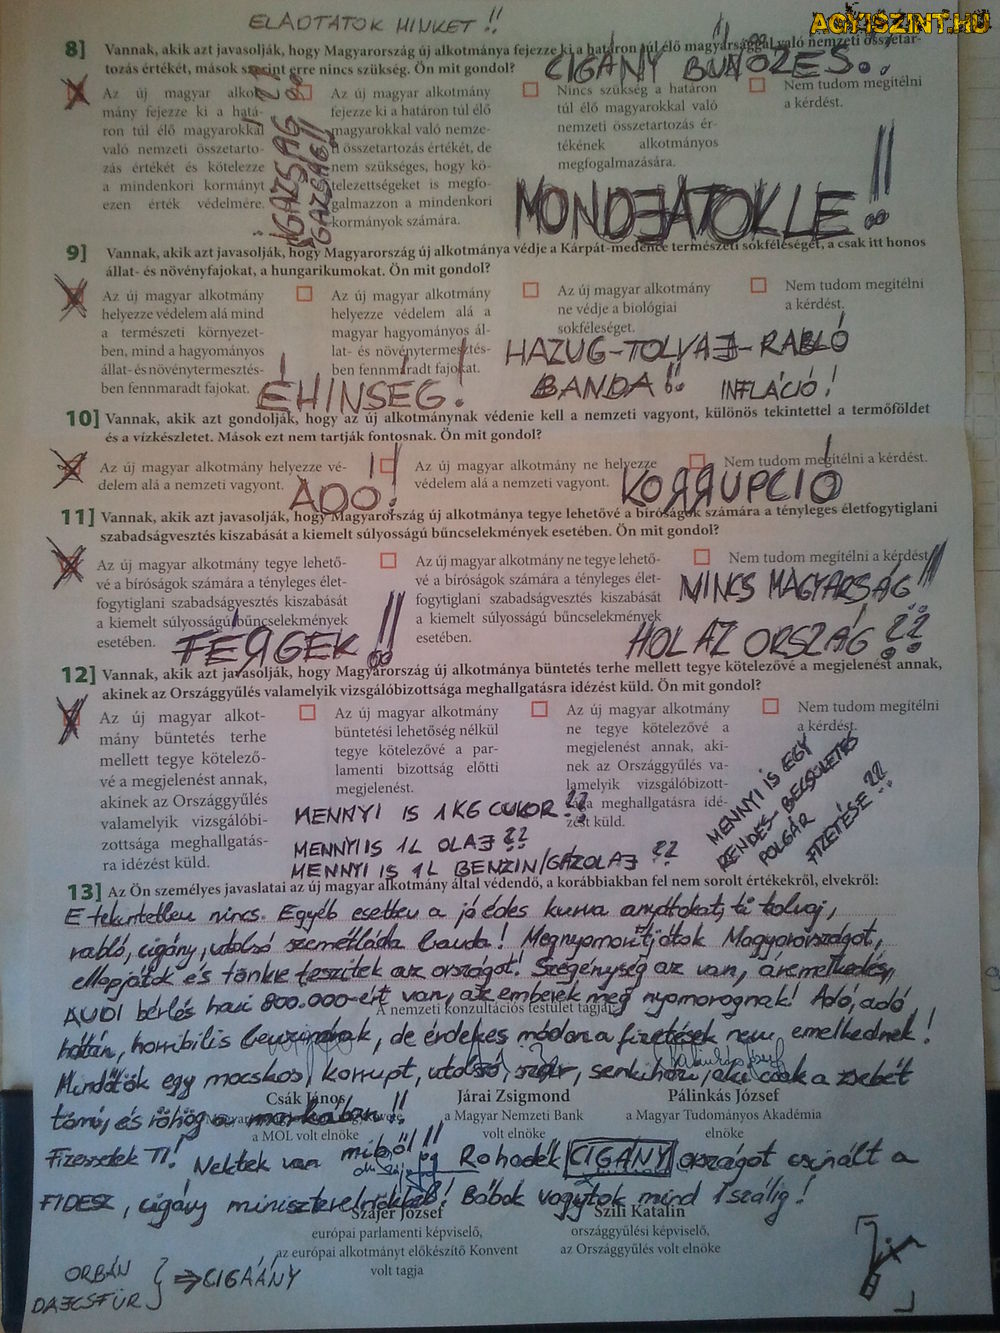 AGYISZINT.HU
ELADTATOK MINKET!!
8] Vannak, akik azt javasolják, hogy Magyarország új alkotmánya fejezze ki a határon túl élő magyarsággal való nemzeti összetar-
tozás értékét, mások szerint erre nincs szükség. Ön mit gondol?
CIGÁNY BŰNÖZÉS..
Az új magyar alkot-
mány fejezze ki a hatá-
ron túl élő magyarokkal
való nemzeti összetarto-
zás értékét és kötelezze
a mindenkori kormányt
ezen érték védelmére.
IGAZSÁG
IGAZSÁG!!
Az új magyar alkotmány
fejezze ki a határon túl élő
magyarokkal való nemze-
ti összetartozás értékét, de
nem szükséges, hogy kö-
telezettségeket is megfo-
galmazzon a mindenkori
kormányok számára.
Nincs szükség a határon
túl élő magyarokkal való
nemzeti összetartozás ér-
tékének alkotmányos
megfogalmazására.
Nem tudom megítélni
a kérdést.
MONDJATOK LE!!
9] Vannak, akik azt javasolják, hogy Magyarország új alkotmánya védje a Kárpát-medence természeti sokféleségét, a csak itt honos
állat- és növényfajokat, a hungarikumokat. Ön mit gondol?
Az új magyar alkotmány
helyezze védelem alá mind
a természeti környezet-
ben, mind a hagyományos
állat- és növénytermesztés-
ben fennmaradt fajokat.
Az új magyar alkotmány
helyezze védelem alá a
magyar hagyományos ál-
lat- és növénytermesztés-
ben fennmaradt fajokat.
Az új magyar alkotmány
ne védje a biológiai
sokféleséget.
Nem tudom megítélni
a kérdést.
HAZUG-TOLVAJ-RABLÓ
BANDA!! INFLÁCIÓ!
ÉHÍNSÉG!
10] Vannak, akik azt gondolják, hogy az új alkotmánynak védenie kell a nemzeti vagyont, különös tekintettel a termőföldet
és a vízkészletet. Mások ezt nem tartják fontosnak. Ön mit gondol?
Az új magyar alkotmány helyezze vé-
delem alá a nemzeti vagyont.
Az új magyar alkotmány ne helyezze
védelem alá a nemzeti vagyont.
Nem tudom megítélni a kérdést.
ADÓ!
KORRUPCIÓ
11] Vannak, akik azt javasolják, hogy Magyarország új alkotmánya tegye lehetővé a bíróságok számára a tényleges életfogytiglani
szabadságvesztés kiszabását a kiemelt súlyosságú bűncselekmények esetében. Ön mit gondol?
Az új magyar alkotmány tegye lehető-
vé a bíróságok számára a tényleges élet-
fogytiglani szabadságvesztés kiszabását
a kiemelt súlyosságú bűncselekmények
esetében.
Az új magyar alkotmány ne tegye lehető-
vé a bíróságok számára a tényleges élet-
fogytiglani szabadságvesztés kiszabását
a kiemelt súlyosságú bűncselekmények
esetében.
Nem tudom megítélni a kérdést.
NINCS MAGYARSÁG!!
FÉRGEK!!
HOL AZ ORSZÁG??
12] Vannak, akik azt javasolják, hogy Magyarország új alkotmánya büntetés terhe mellett tegye kötelezővé a megjelenést annak,
akinek az Országgyűlés valamelyik vizsgálóbizottsága meghallgatásra idézést küld. Ön mit gondol?
Az új magyar alkot-
mány büntetés terhe
mellett tegye kötelező-
vé a megjelenést annak,
akinek az Országgyűlés
valamelyik vizsgálóbi-
zottsága meghallgatás-
ra idézést küld.
Az új magyar alkotmány
büntetési lehetőség nélkül
tegye kötelezővé a par-
lamenti bizottság előtti
megjelenést.
Az új magyar alkotmány
ne tegye kötelezővé a
megjelenést annak, aki-
nek az Országgyűlés va-
lamelyik vizsgálóbizott-
sága meghallgatásra idé-
zést küld.
Nem tudom megítélni
a kérdést.
MENNYI IS EGY
RENDES-BECSÜLETES
POLGÁR
FIZETÉSE??
MENNYI IS 1KG CUKOR??
MENNYI IS 1L OLAJ??
MENNYI IS 1L BENZIN/GÁZOLAJ??
13] Az Ön személyes javaslatai az új magyar alkotmány által védendő, a korábbiakban fel nem sorolt értékekről, elvekről:
E tekintetben nincs. Egyéb esetben a jó édes kurva anyátokat, ti tolvaj,
rabló, cigány, utolsó szemétláda banda! Megnyomorítjátok Magyarországot,
ellopjátok és tönkre teszitek az országot! Szegénység az van, áremelkedés,
AUDI bérlés havi 800.000-ért van, az emberek meg nyomorognak! Adó, adó
A nemzeti konzultációs testület tagjai
hátán, horribilis benzinárak, de érdekes módon a fizetések nem emelkednek!
Mindőtök egy mocskos, korrupt, utolsó szar, senkiházi, aki csak a zsebét
Csák János
Járai Zsigmond
Pálinkás József
tömi, és röhög a markában!!
a MOL volt elnöke
a Magyar Nemzeti Bank
volt elnöke
a Magyar Tudományos Akadémia
elnöke
Fizessetek TI! Nektek van miből!! Rohadék CIGÁNY országot csinált a
FIDESZ, cigány miniszterelnökkel! Bábok vagytok mind 1 szálig!
Szájer József
Szili Katalin
európai parlamenti képviselő,
az európai alkotmányt előkészítő Konvent
volt tagja
országgyűlési képviselő,
az Országgyűlés volt elnöke
ORBÁN
DAJCSFÜR } ⇒ CIGÁÁNY